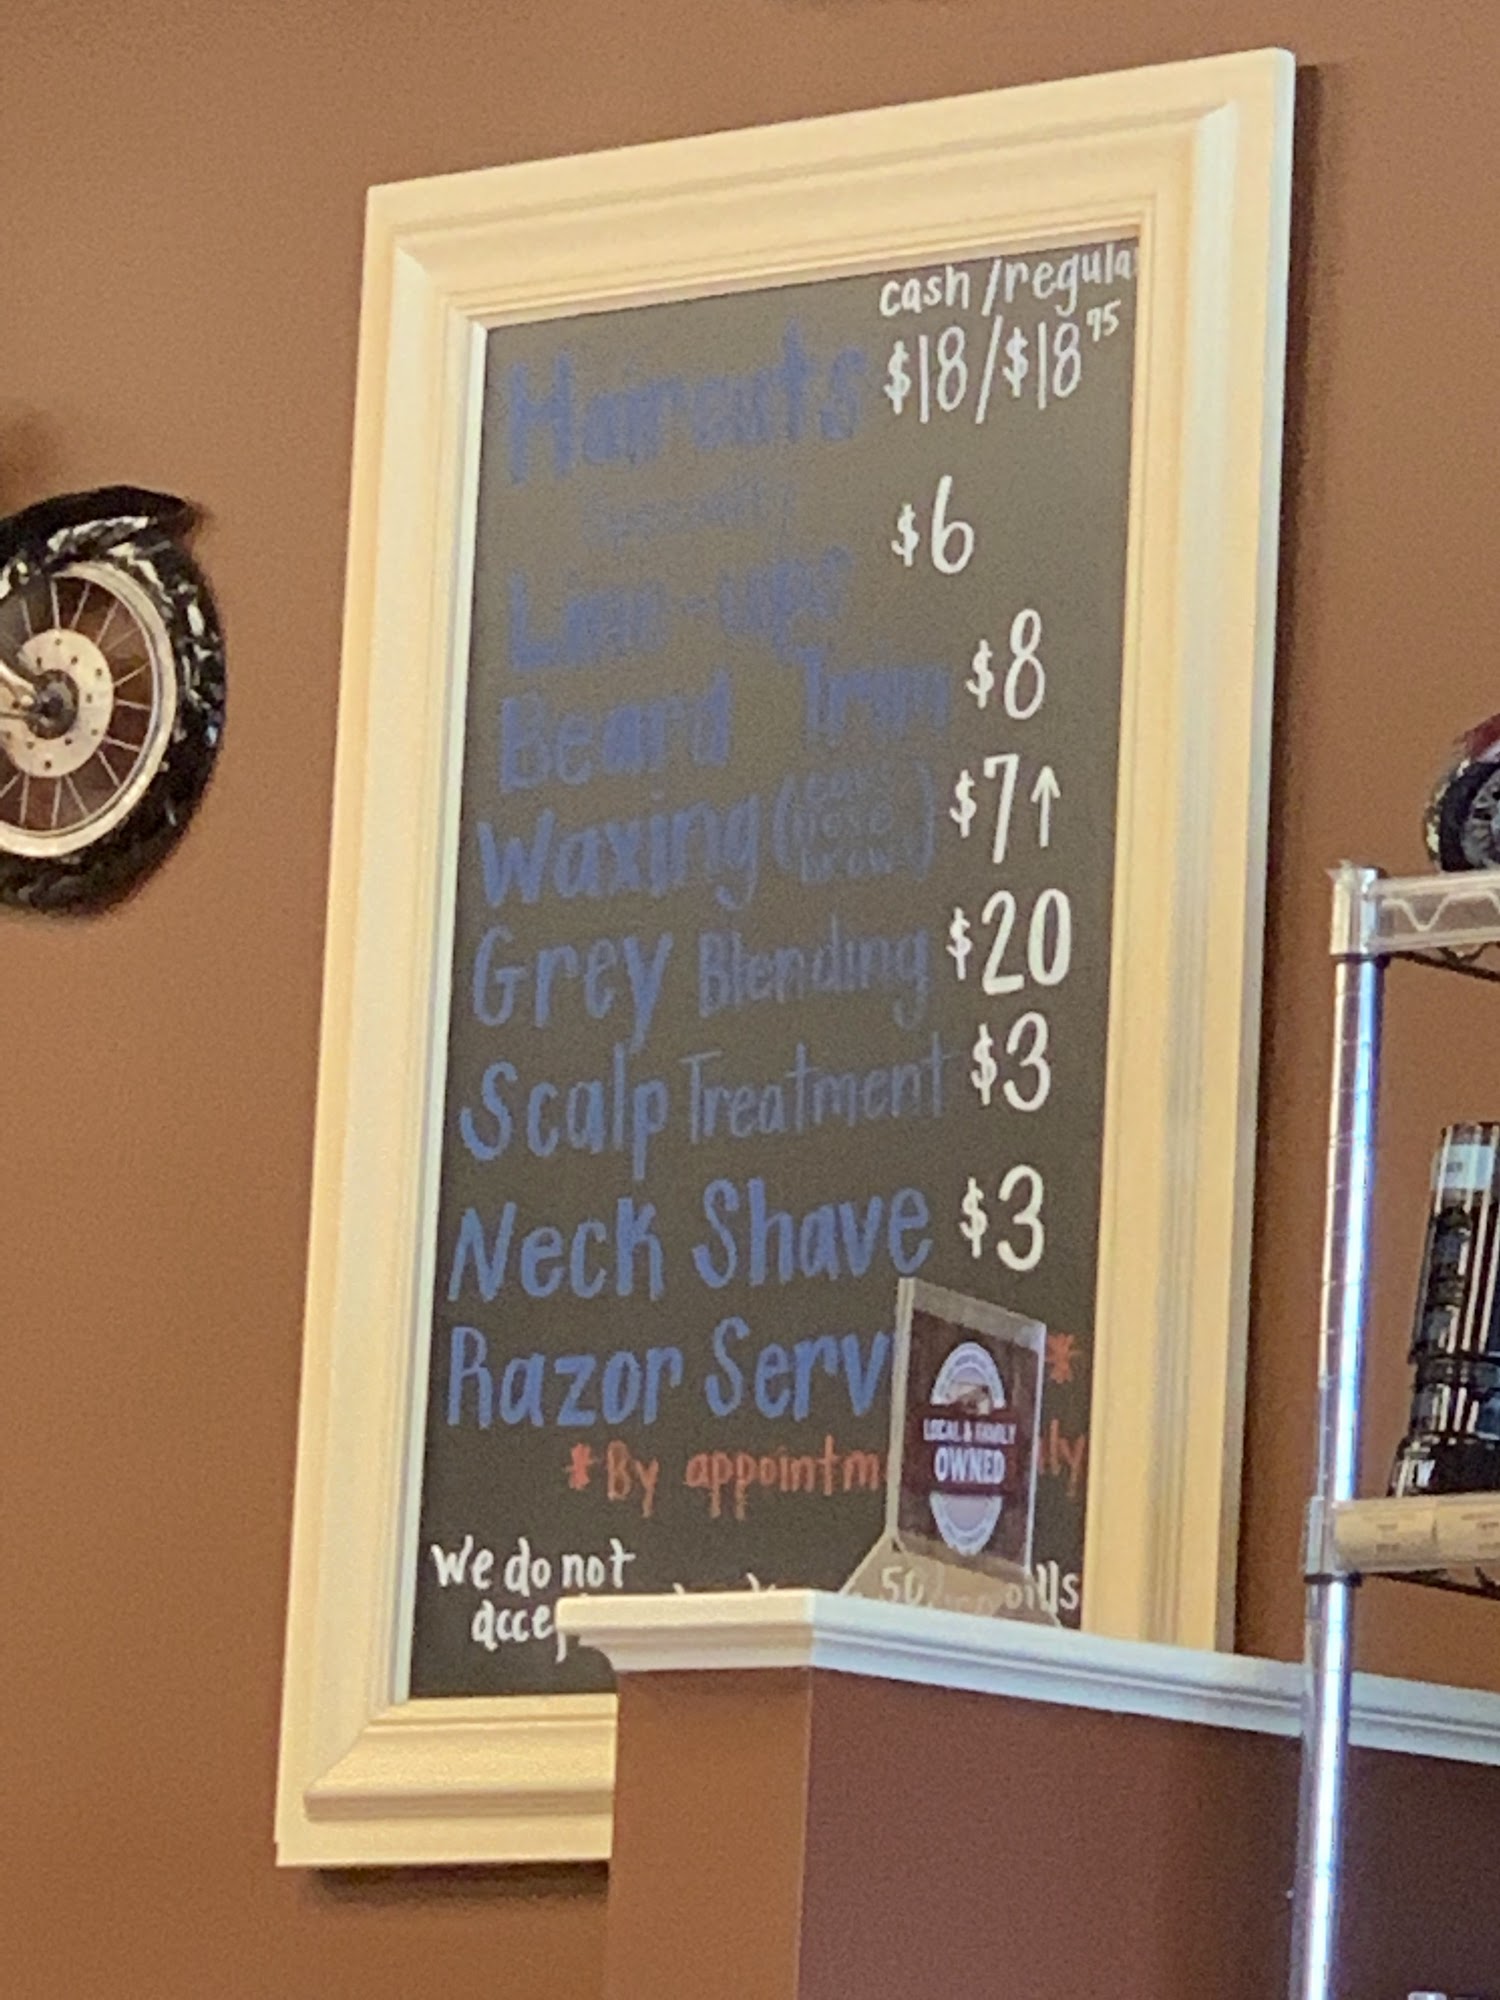 cash/regula
Haircuts $18/$18 75
$6
Line-ups
Beard Trim $8
Waxing (ear nose brow) $7↑
Grey Blending $20
Scalp Treatment $3
Neck Shave $3
Razor Serv *
*By appointm ly
We do not
accep 50/ bills
LOCAL & FAMILY
OWNED